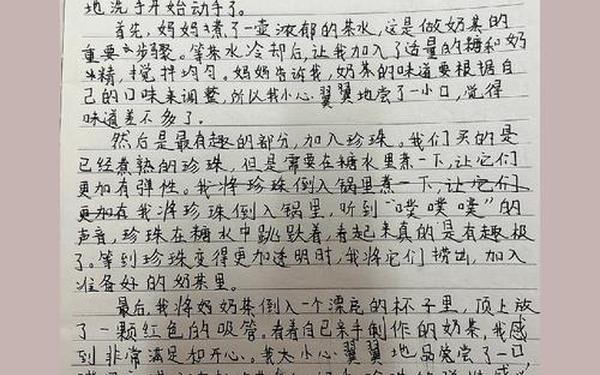 地洗手开始动手了。
首先,妈妈煮了一壶浓郁的茶水,这是做奶茶的
重要步骤。等茶水冷却后,让我加入了适量的糖和奶
精,搅拌均匀。妈妈告诉我,奶茶的味道要根据自
己的口味来调整,所以我小心翼翼地尝了一小口,觉得
味道差不多了。
然后是最有趣的部分,加入珍珠。我们买的是
已经煮熟的珍珠,但是需要在糖水里煮一下,让它们
更加有弹性。我将珍珠倒入锅里煮一下,让它们
更加有我将珍珠倒入锅里,听到“噗噗噗”的
声音,珍珠在糖水中跳跃着,看起来真的是有趣极
了。等到珍珠变得更加透明时,我将它们捞出,加入
准备好的奶茶里。
最后,我将奶奶茶倒入一个漂亮的杯子里,顶上放
了一颗红色的吸管。看着自己亲手制作的奶茶,我感
到非常满足和开心。我太小心翼翼地品尝了一口